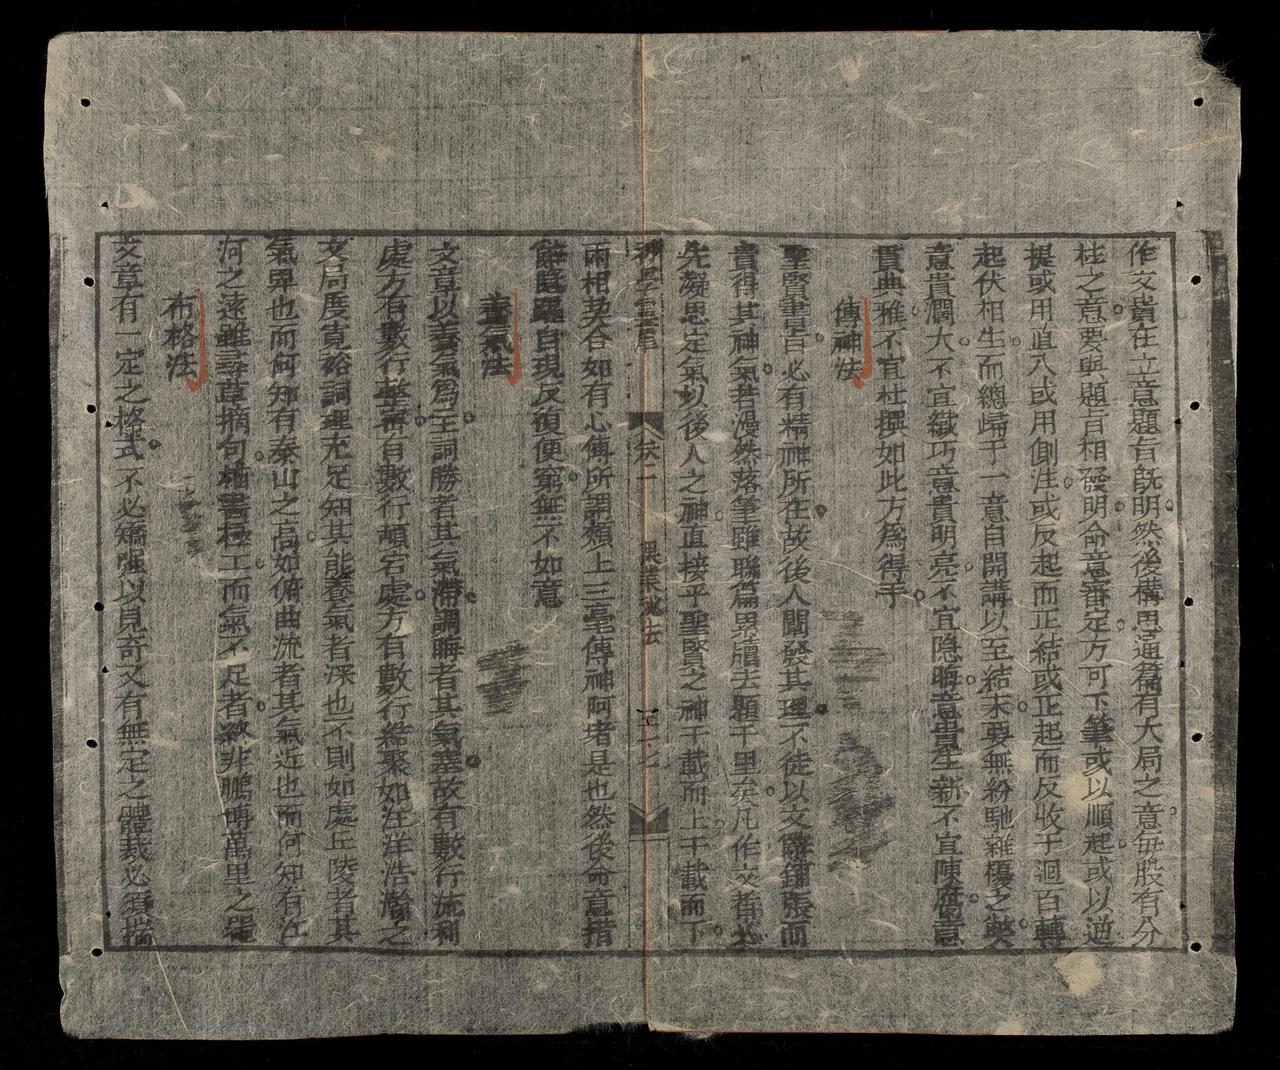 作文貴在立意題旨既明然後構思通篇有大局之意每股有分
柱之意要與題旨相發明命意審定方可下筆或以順起或以逆
提或用直入或用側注或反起而正結或正起而反收于迴百轉
起伏相生而總歸于一意自開講以至結末要無紛馳雜櫌之弊
意貴濶大不宜纎巧意貴明亮不宜隱晦意貴生新不宜陳腐意
貴典雅不宜杜撰如此方為得手
傳神法
聖賢書旨必有精神所在故後人闡發其理不徒以文辭鋪張而
貴得其神氣若漫然落筆雖聯篇累牘去題千里矣凡作文者必
先凝思定氣以後人之神直接乎聖賢之神千載而上千載而下
卷二 舉業秘法 三十七
兩相契合如有心傳所謂頰上三毫傳神阿堵是也然後命意措
自現反復便窮無不如意
養氣法
文章以養氣爲主詞勝者其氣滯調晦者其氣塞故有數行流利
處方有數行整齊有數行頓宕處方有數行結聚如汪洋浩瀚之
文局度寬裕詞理充足知其能養氣者深也不則如處丘陵者其
氣卑也而何知有泰山之高如俯曲流者其氣近也而何知有江
河之遠雖尋章摘句極工而氣不足者終非鵬摶萬里之器
布格法
文章有一定之格式不必矯强以見奇又有無定之體裁必須揣